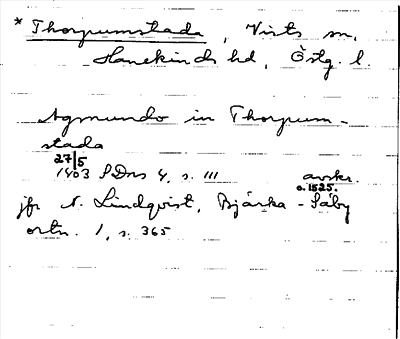 * Thorpumstada, Vists sn,
Hanekinds hd, Östg. l.
Agmundo in Thorpum-
stada
27/5
1403 SDns 4, s. 111 avskr.
o. 1525.
jfr N. Lindqvist, Bjärka-Säby
ortn. 1, s. 365